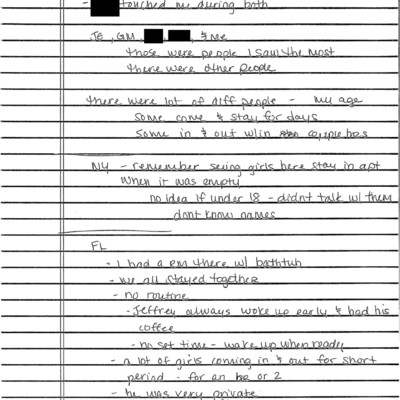 - touched me during both
JE, GM, , , & me
those were people I saw the most
there were other people
there were lot of diff people - my age
some come & stay for days
some in & out w/in couple hrs
NY - remember seeing girls here stay in apt
when it was empty
no idea if under 18 - didnt talk w/ them
dont know names
FL
- I had a rm there w/ bathtub
- we all stayed together
- no routine
- Jeffrey always woke up early & had his
coffee
- no set time - wake up when ready
- a lot of girls coming in & out for short
period - for an hr or 2
- he was very private